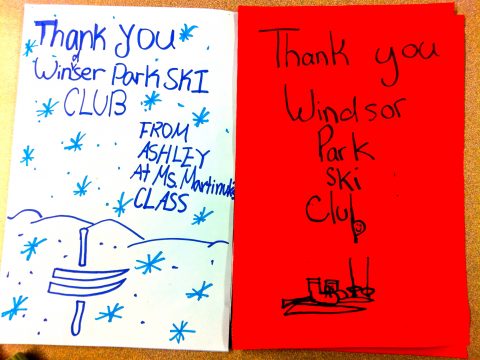 Thank you
Winser Park SKI
CLUB
FROM
ASHLEY
At Ms. Martinuk's
CLASS
Thank you
Windsor
Park
Ski
Club